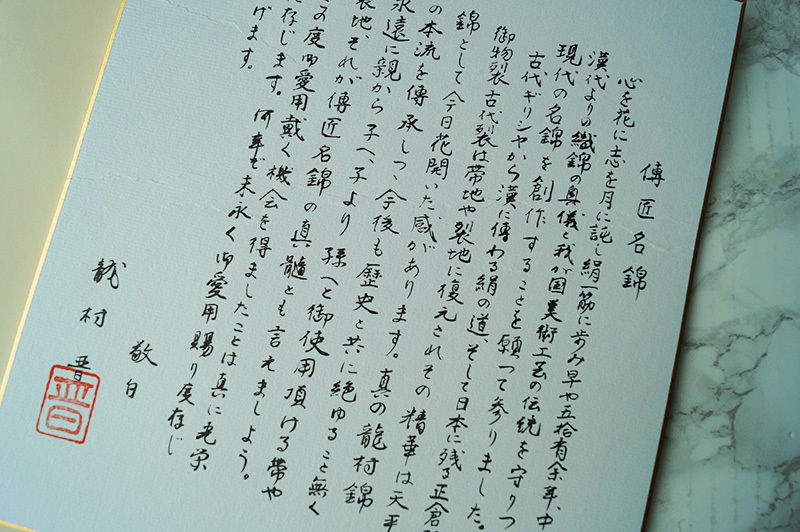 傳匠名錦
心を花に志を月に託し絹一筋に歩み早や五拾有余年、中
漢代よりの織錦の奥儀と我が国美術工芸の伝統を守りつ
現代の名錦を創作することを願って参りました。
古代ギリシヤから漢に傳わる絹の道、そして日本に残る正倉
御物裂古代裂は帯地や裂地に復元されその精華は天平
錦として今日花開いた感があります。真の龍村錦
の本流を傳承しつつ今後も歴史と共に絶ゆること無く
永遠に親から子へ、子より孫へと御使用頂ける帯や
裂地、それが傳匠名錦の真髄とも言えましよう。
の度御愛用戴く機会を得ましたことは真に光栄
に存じます。何卒末永く御愛用賜り度存じ
げます。
敬白
龍村晋
晋